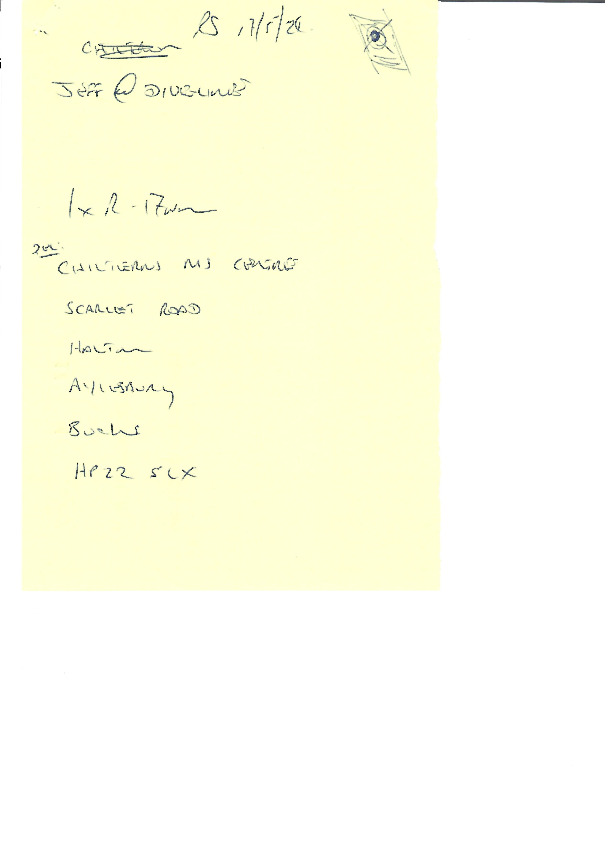 RS 17/5/24
JEFF @ DIVELINE
1 x R - 17
CHILTERNS MS CENTRE
SCARLET ROAD
HALTON
AYLESBURY
BUCKS
HP22 5LX